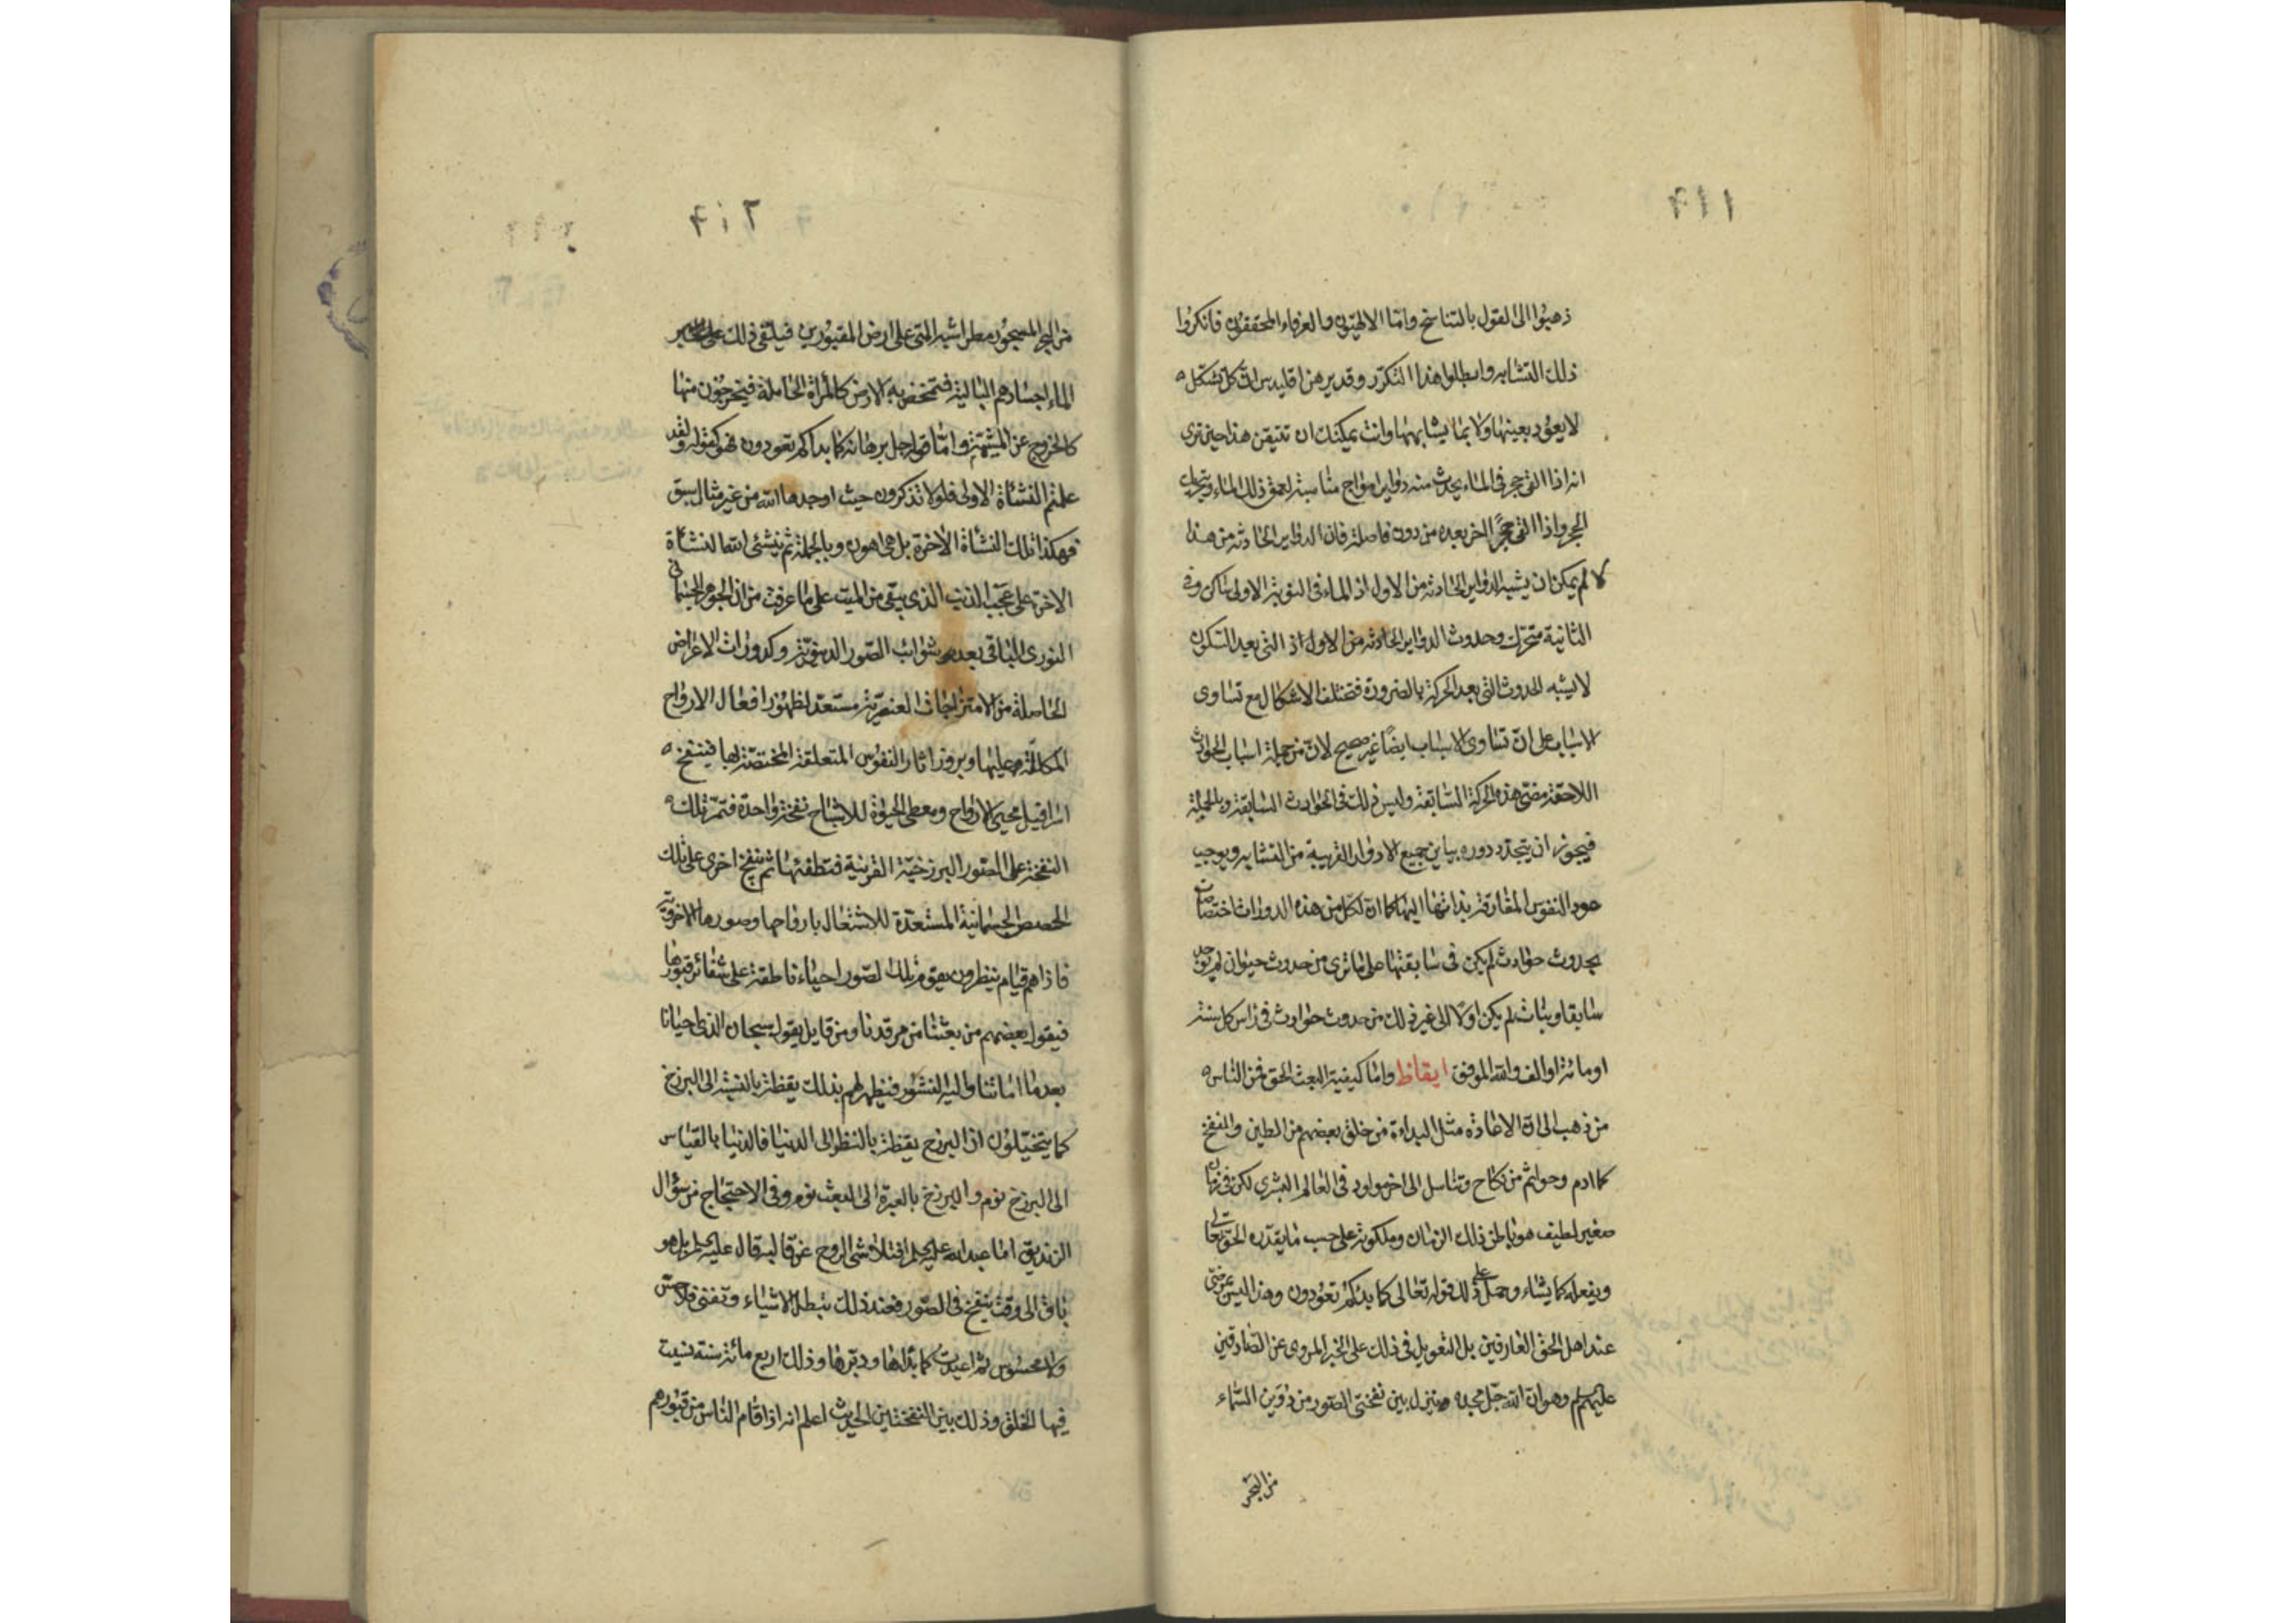 ٦١١
ذهبوا الى القول بالتناسخ واما الالهيون والعرفاء المحققون فانكروا
ذلك التشابه وابطلوا هذا التكرر وقد برهن اقليدس ان كل تشكل
لا يعود بعينها ولا بما يشابهها وانت يمكنك ان تتيقن هذا حين ترى
انه اذا القى حجر فى الماء يحدث منه دواير امواج مناسبة لعمق ذلك الماء
الحجر واذا القى حجر اخر بعده من دون فاصلة فان الدواير الحادثة من هذا
لا يمكن ان يشبه الدواير الحادثة من الاول اذ الماء فى النوبة الاولى ساكن وفى
الثانية متحرك وحدوث الدواير الحادثة من الاول اذ التى بعد السكون
لا يشبه الحدوث التى بعد الحركة بالضرورة فتختلف الاشكال مع تساوى
الاسباب على ان تساوى الاسباب ايضا غير صحيح لان من جملة اسباب الحوادث
اللاحقة مضى هذه الحركة السابقة وليس ذلك فى الحوادث السابقة وبالجملة
فيجوز ان يتجدد دوره يباين جميع الادوار القريبة من التشابه ويوجب
عود النفوس المفارقة بذاتها اليها كما ان لكل من هذه الدورات اختصاصات
بحدوث حوادث لم يكن فى سابقتها على ما ترى من حدوث حيوان لم يوجد
سابقا ونبات لم يكن اولا الى غير ذلك من حدوث حوادث فى راس كل سنة
او مائة او الف والله الموفق ايقاظ واما كيفية البعث الحق فمن الناس
من ذهب الى ان الاعادة مثل البداءة من خلق بعضهم من الطين والنفخ
كما ادم وحوا ثم من نكاح وتناسل الى اخر مولود فى العالم البشرى لكن فى زمان
صغير لطيف هو باطن ذلك الزمان وملكوته على حسب ما يقدره الحق تعالى
ويفعله كما يشاء وحمل على ذلك قوله تعالى كما بدئكم تعودون وهذا ليس بمرضى
عند اهل الحق العارفين بل التعويل فى ذلك على الخبر المروى عن الصادقين
عليهم السلم وهو ان الله جل مجده ينزل بين نفختى الصور من دوين السماء
من البحر
٦١٢
من البحر المسجور مطرا شبه المنى على ارض المقبورين فيلقى ذلك على
الماء اجسادهم البالية فتمخض به الارض كالمرأة الحاملة فيخرجون منها
كالخروج عن المشيمة واما قوله جل برهانه كما بداكم تعودون فهو كقوله ولقد
علمتم النشأة الاولى فلولا تذكرون حيث اوجدها الله من غير مثال سبق
فهكذا تلك النشأة الاخرة بل هى اهون وبالجملة ثم ينشئ الله النشأة
الاخرة على عجب الذنب الذى يبقى من الميت على ما عرفت من ان الجوهر الجسمانى
النورى الباقى بعده شوائب الصور الدنيوية وكدورات الاعراض
الحاصلة من الامتزاجات العنصرية مستعد لظهور افعال الارواح
عليها وبروز اثار النفوس المتعلقة المختصة بها فينفخ
اسرافيل محيى الارواح ومعطى الحيوة للاشباح نفخة واحدة فتمر تلك
النفخة على الصور البرزخية القرينة فتطفئها ثم ينفخ اخرى على تلك
الحصص الجسمانية المستعدة للاشتعال بارواحها وصورها الاخروية
فاذا هم قيام ينظرون فيقوم تلك الصور احياء ناطقة على شفائر قبورها
فيقول بعضهم من بعثنا من مرقدنا ومن قايل يقول سبحان الذى احيانا
بعد ما اماتنا واليه النشور فيظهر لهم بذلك يقظة بالنسبة الى البرزخ
كما يتخيلون ان البرزخ يقظة بالنظر الى الدنيا فالدنيا بالقياس
الى البرزخ نوم والبرزخ بالعبرة الى البعث نوم وفى الاحتجاج من سؤال
الزنديق ابا عبد الله عليه السلم افتلاشى الروح عن قالبه قال عليه السلم بل هو
باق الى وقت ينفخ فى الصور فعند ذلك تبطل الاشياء وتفنى فلا حس
ولا محسوس ثم اعيدت كما بدأها مدبرها وذلك اربع مائة سنة نسيت
فيها الخلق وذلك بين النفختين الحديث اعلم انه اذا قام الناس من قبورهم